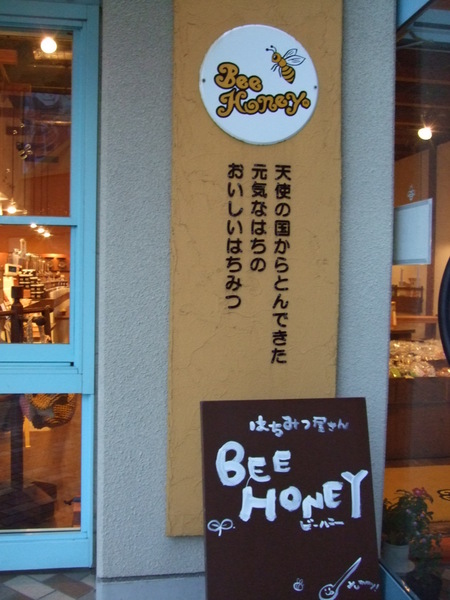 Bee
Honey
天使の国からとんできた
元気なはちの
おいしいはちみつ
はちみつ屋さん
BEE
HONEY
ビーハニー